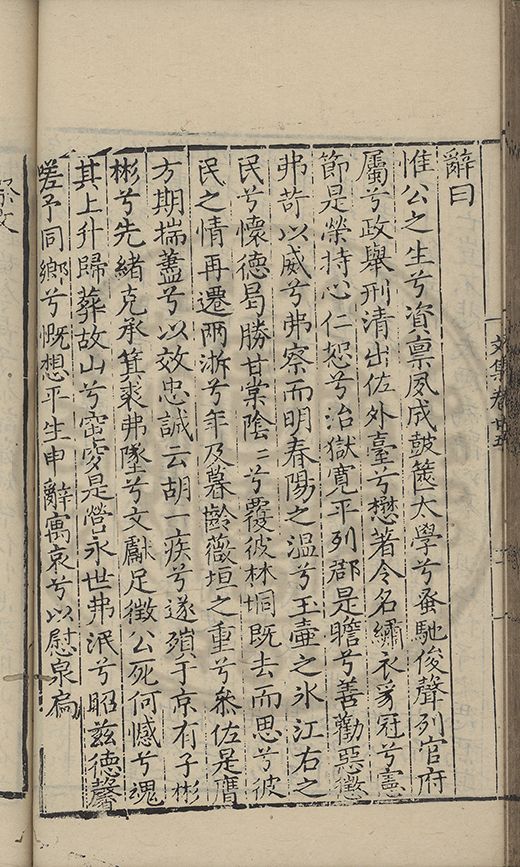 辭曰
惟公之生兮資禀夙成鼓篋大學兮蚤馳俊聲列官府
屬兮政舉刑清出佐外臺兮懋著令名繡衣豸冠兮憲
節是榮持心仁恕兮治獄寬平列郡是瞻兮善勸惡懲
弗苛以威兮弗察而明春陽之溫兮玉壷之氷江右之
民兮懷德曷勝甘棠陰〻兮覆彼林坰既去而思兮彼
民之情再遷兩浙兮年及暮齡薇垣之重兮叅佐是膺
方期揣藎兮以效忠誠云胡一疾兮遂殞于京有子彬
彬兮先緒克承箕裘弗墜兮文獻足徵公死何憾兮魂
其上升歸葬故山兮窀穸是營永世弗泯兮昭兹德馨
嗟予同鄉兮慨想平生申辭寓哀兮以慰泉扃
文集卷廿五
祭文